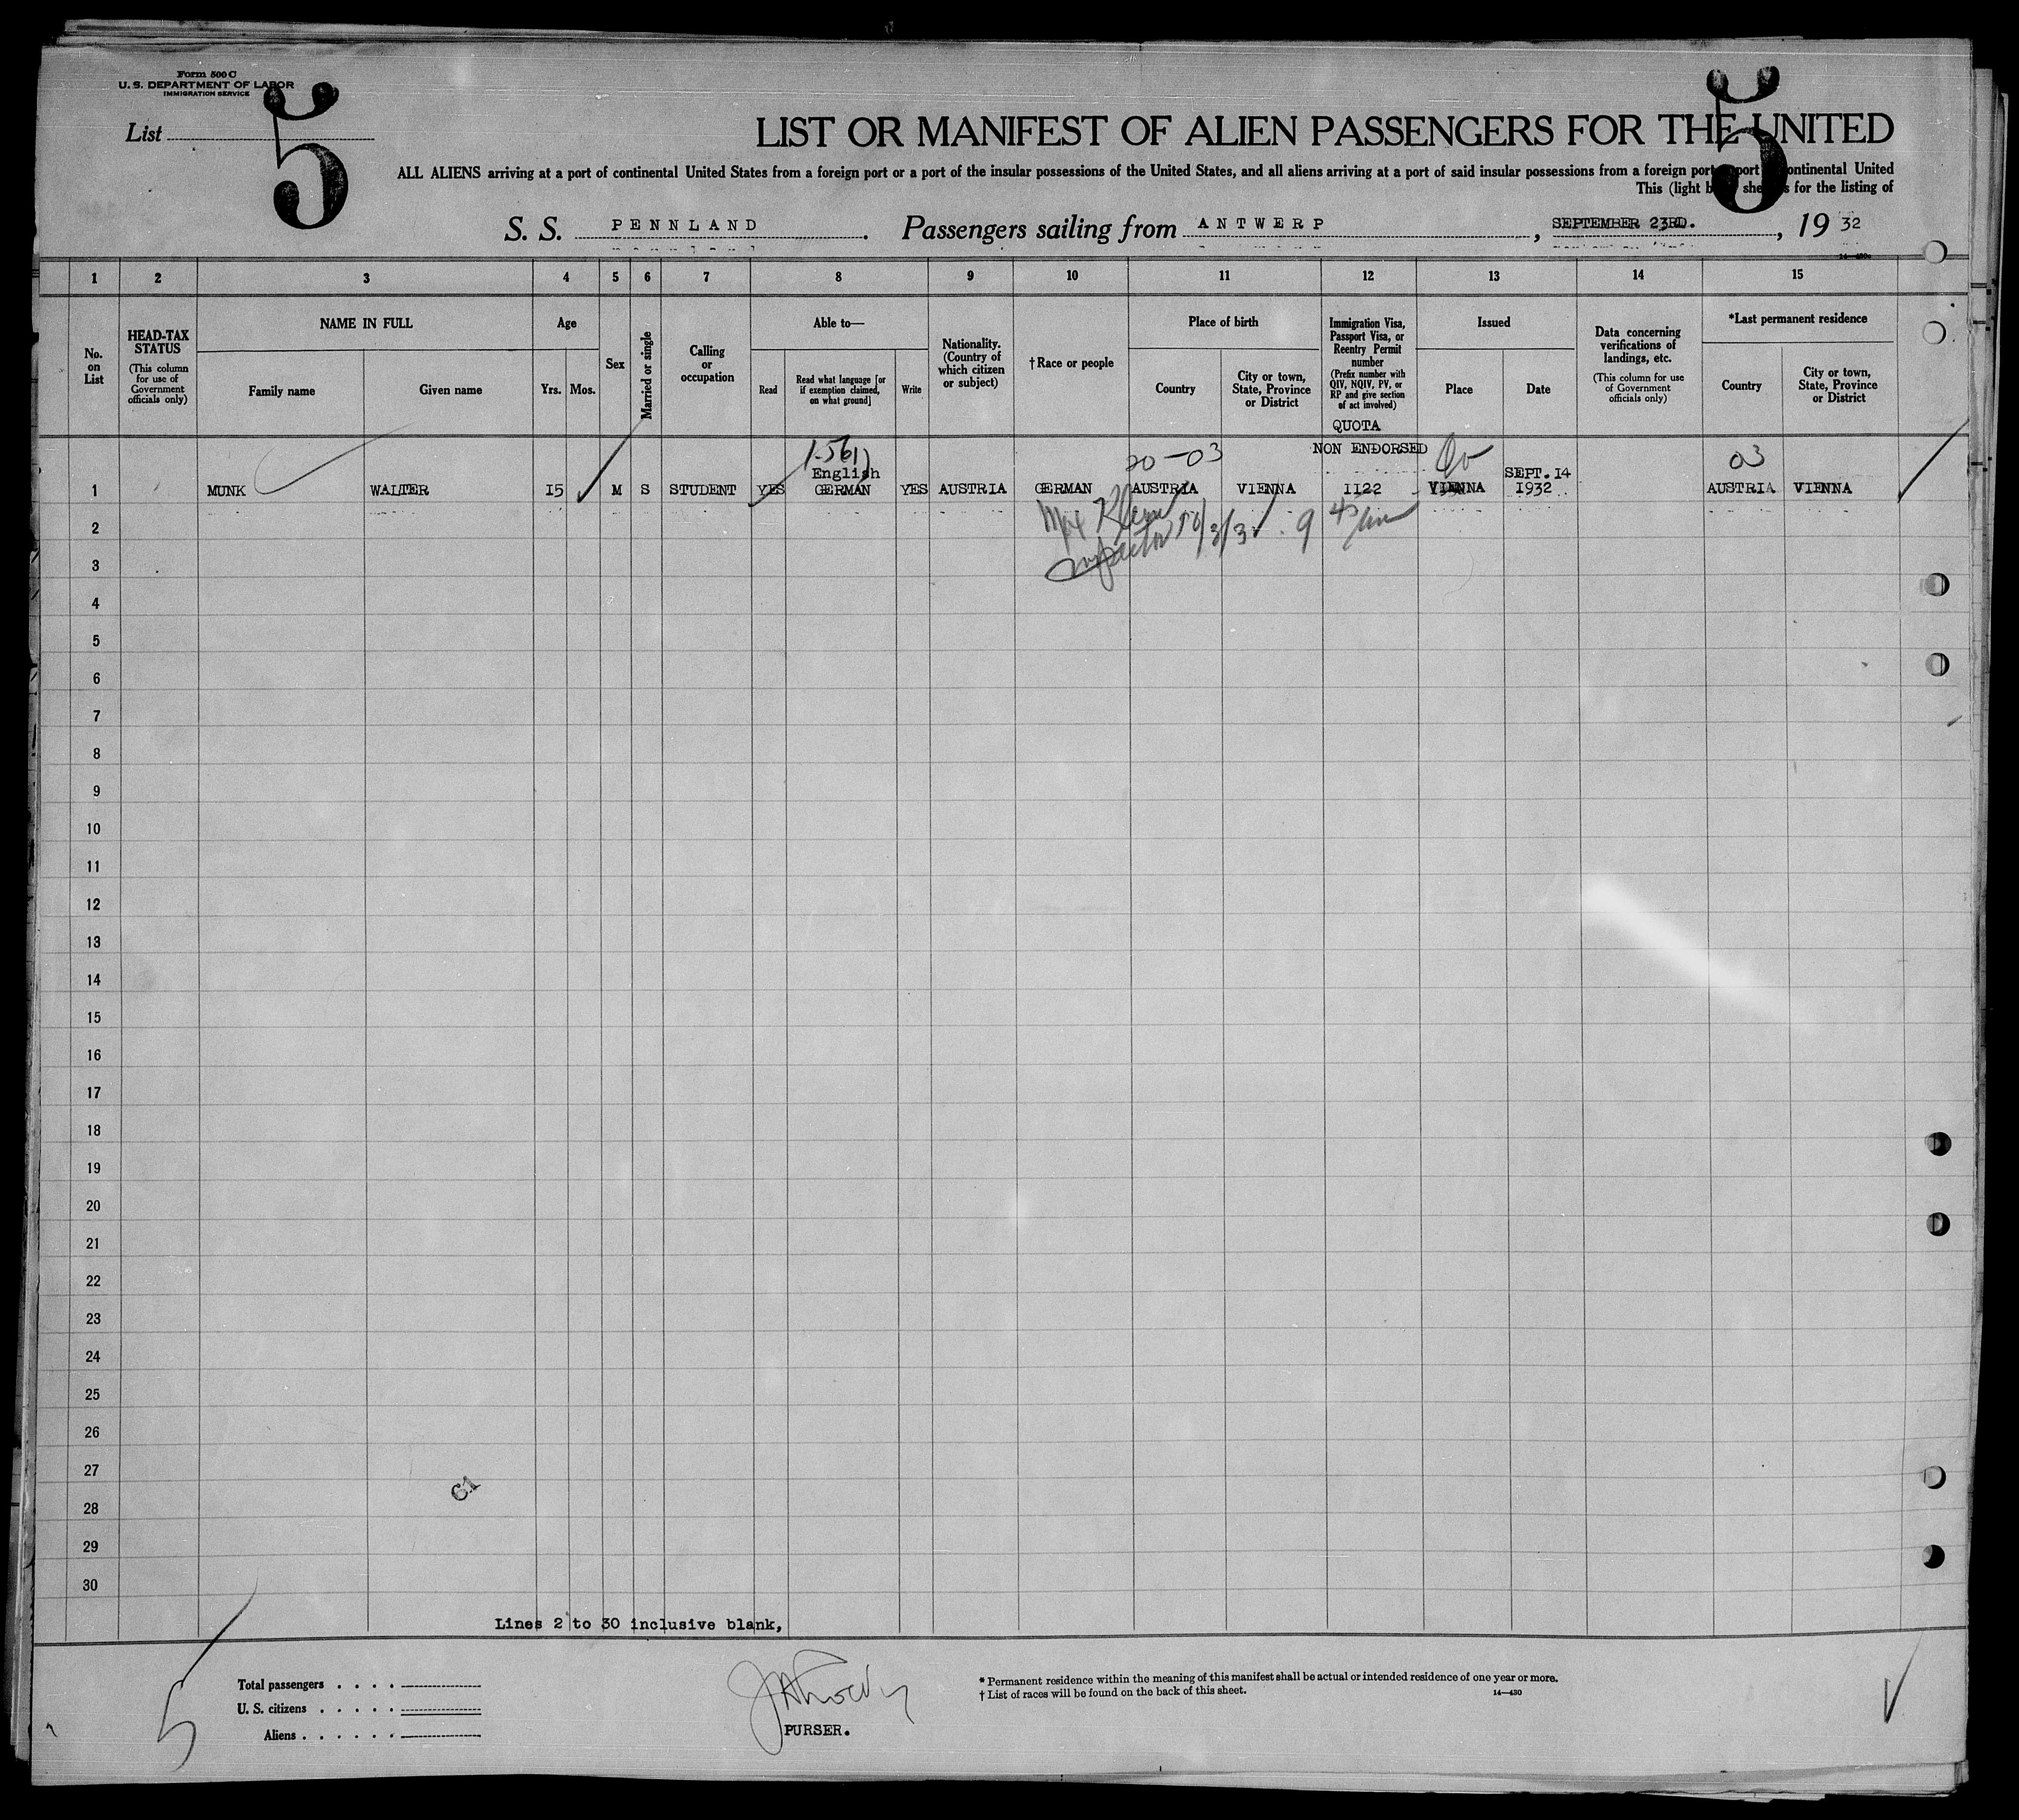 Form 500 C
U. S. DEPARTMENT OF LABOR
IMMIGRATION SERVICE
List 5
5
LIST OR MANIFEST OF ALIEN PASSENGERS FOR THE UNITED
ALL ALIENS arriving at a port of continental United States from a foreign port or a port of the insular possessions of the United States, and all aliens arriving at a port of said insular possessions from a foreign port port continental United
This (light shee s for the listing of
S. S. PENNLAND. Passengers sailing from ANTWERP, SEPTEMBER 23RD., 19 32
1 2 3 4 5 6 7 8 9 10 11 12 13 14 15
No. on List
HEAD-TAX STATUS
(This column for use of Government officials only)
NAME IN FULL
Family name
Given name
Age
Yrs. Mos.
Sex
Married or single
Calling or occupation
Able to—
Read
Read what language [or if exemption claimed, on what ground]
Write
Nationality. (Country of which citizen or subject)
†Race or people
Place of birth
Country
City or town, State, Province or District
Immigration Visa, Passport Visa, or Reentry Permit number
(Prefix number with QIV, NQIV, PV, or RP and give section of act involved)
QUOTA
Issued
Place
Date
Data concerning verifications of landings, etc.
(This column for use of Government officials only)
*Last permanent residence
Country
City or town, State, Province or District
1-561
20-03
NON ENDORSED
03
English
SEPT.14
1 MUNK WALTER 15 M S STUDENT YES GERMAN YES AUSTRIA GERMAN AUSTRIA VIENNA 1122 VIENNA 1932 AUSTRIA VIENNA
Max Klein
Inspector
9
2
3
4
5
6
7
8
9
10
11
12
13
14
15
16
17
18
19
20
21
22
23
24
25
26
27
28
29
30
Lines 2 to 30 inclusive blank,
5
Total passengers
U. S. citizens
Aliens
PURSER.
* Permanent residence within the meaning of this manifest shall be actual or intended residence of one year or more.
† List of races will be found on the back of this sheet.
14—430